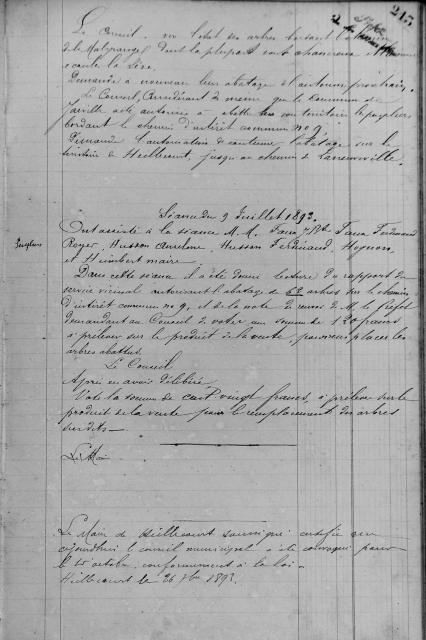 215
Le Conseil, vu l'état des arbres bordant le chemin
de la Malgrange dont la plupart sont chancreux
écoule la sève.
Demande à nouveau leur abatage à l'automne prochain,
Le Conseil, Considérant de même que la Commune de
Jaiville a été autorisée à abattre sur son territoire les peupliers
bordant le chemin d'intérêt commun no 9,
Demande l'autorisation de continuer l'abatage sur le
territoire de Heillecourt, jusqu'au chemin de Laneuveville.
Séance du 9 Juillet 1893.
Ont assisté à la séance M. M. Faux Ferdinand
Royer, Husson Anselme, Husson Ferdinand,
et Humbert maire.
Dans cette séance il a été donné lecture du rapport du
service vicinal autorisant l'abatage de 62 arbres sur le chemin
d'intérêt commun no 9, et de la note de M. le préfet
demandant au Conseil de voter une somme de 120 francs
à prélever sur le produit de la vente, pour remplacer les
arbres abattus.
Le Conseil
Après en avoir délibéré
Vote la somme de cent vingt francs, à prélever sur le
produit de la vente pour le remplacement des arbres
susdits —
Le Maire de Heillecourt soussigné certifie qu'
aujourd'hui le conseil municipal a été convoqué pour
le octobre, conformément à la loi.
Heillecourt le 26 7bre 1893.